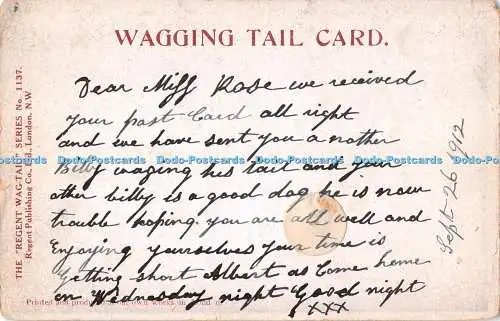 WAGGING TAIL CARD.
Dear Miss Rose we received
your post Card all right
and we have sent you a nother
Billy waging his tail and your
other billy is a good dog he is now
trouble hoping you are all well and
Enjoying yourselves your time is
Getting short Albert as Come home
on Wednesday night Good night
xxx
Sept 26 1912
THE "REGENT WAG-TAIL" SERIES No. 1137.
Regent Publishing Co., Ltd., London, N.W
Printed and
Dodo-Postcards Dodo-Postcards Dodo-Postcards Dodo-Postcards Dodo-Postcards
Dodo-Postcards Dodo-Postcards Dodo-Postcards Dodo-Postcards Dodo-Postcards